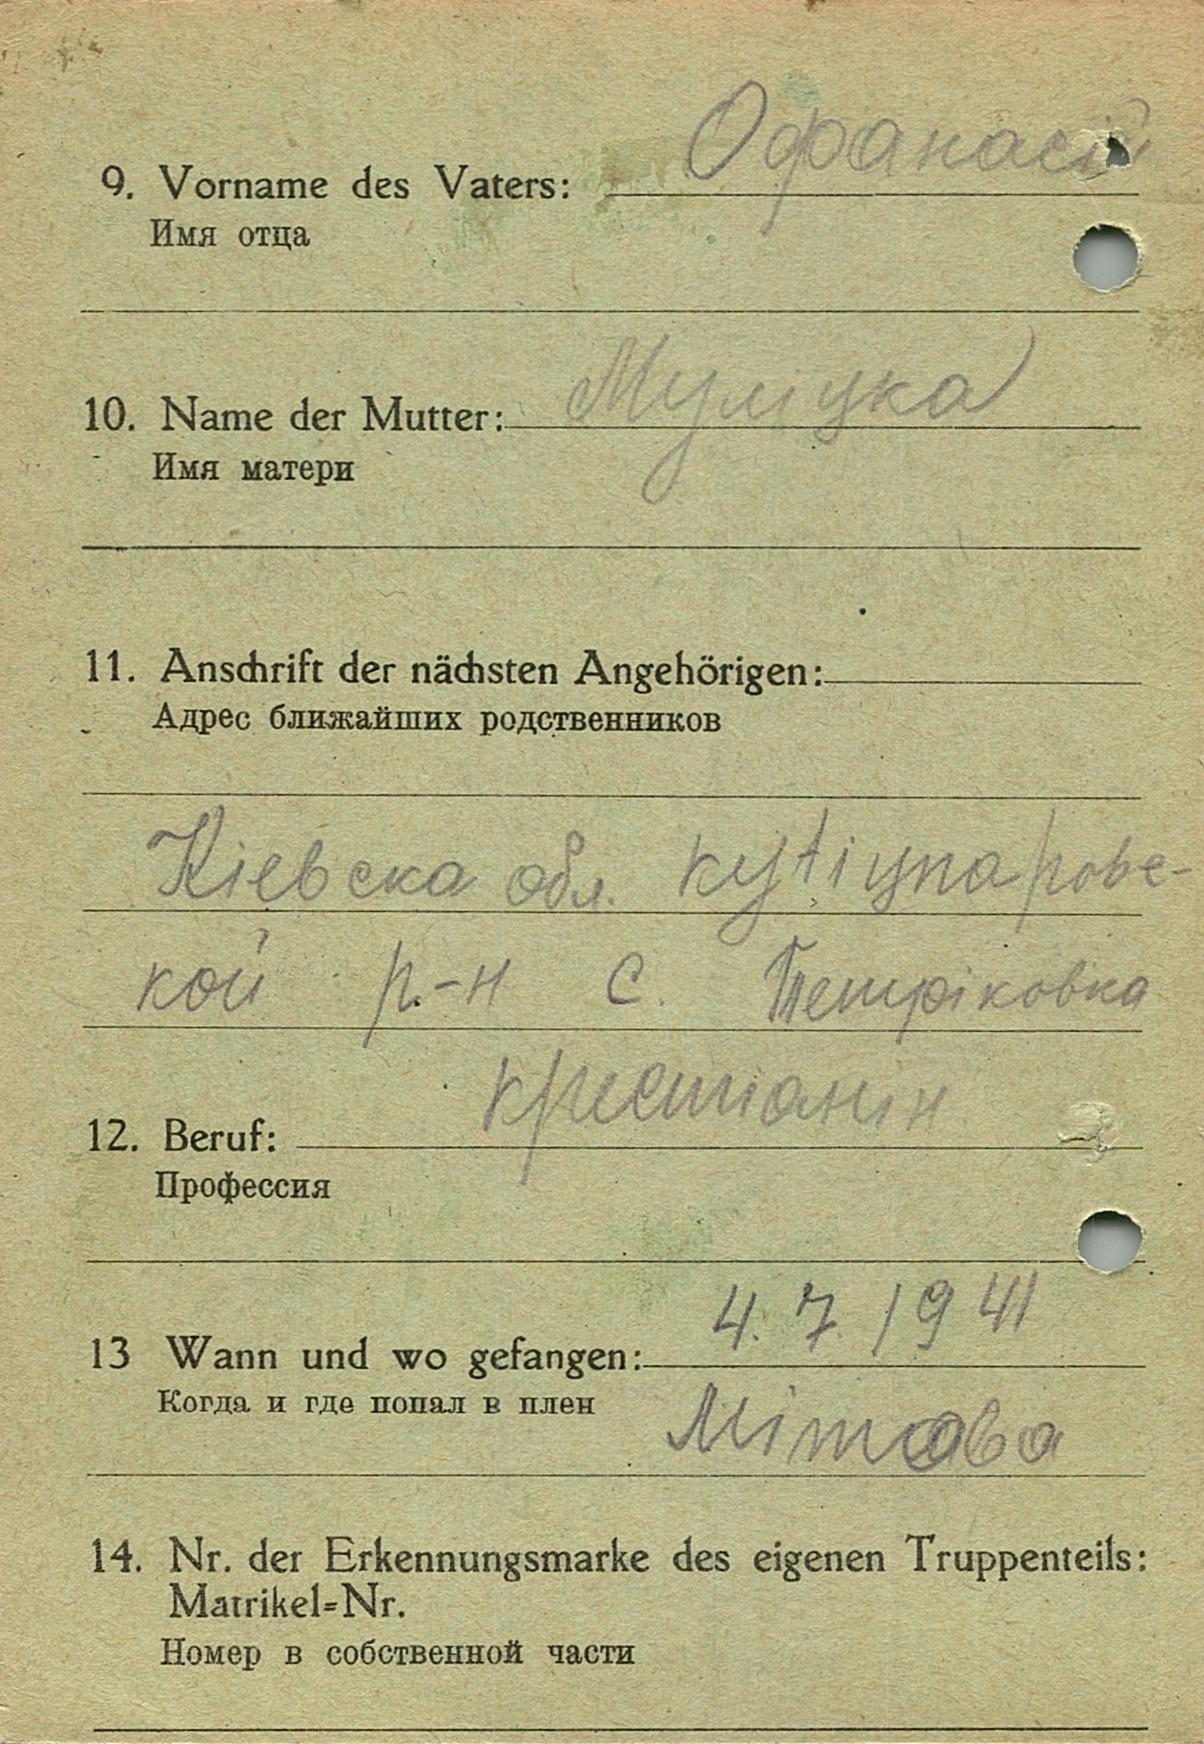 Офанасій
9. Vorname des Vaters:
Имя отца
Муліцка
10. Name der Mutter:
Имя матери
11. Anschrift der nächsten Angehörigen:
Адрес ближайших родственников
Кіевска обл.
кой р.-н с. Петріковка
крестіанін
12. Beruf:
Профессия
4. 7. 1941
13 Wann und wo gefangen:
Когда и где попал в плен
Мітава
14. Nr. der Erkennungsmarke des eigenen Truppenteils:
Matrikel=Nr.
Номер в собственной части